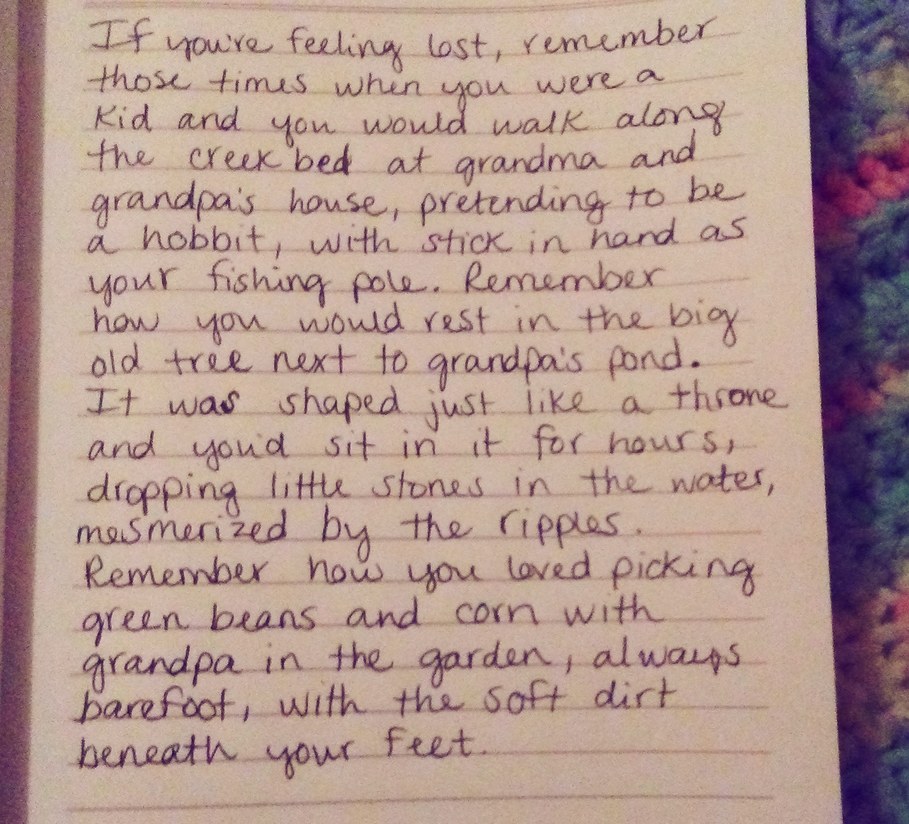 If you're feeling lost, remember
those times when you were a
kid and you would walk along
the creek bed at grandma and
grandpa's house, pretending to be
a hobbit, with stick in hand as
your fishing pole. Remember
how you would rest in the big
old tree next to grandpa's pond.
It was shaped just like a throne
and you'd sit in it for hours,
dropping little stones in the water,
mesmerized by the ripples.
Remember how you loved picking
green beans and corn with
grandpa in the garden, always
barefoot, with the soft dirt
beneath your feet.